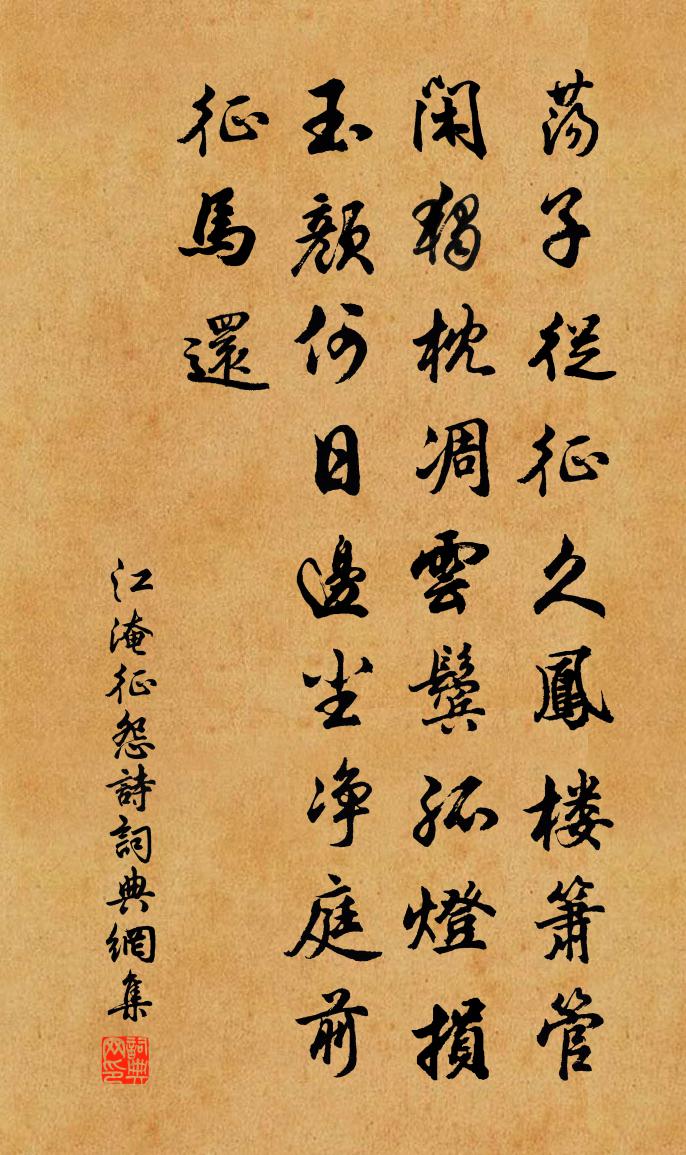 蕩子從征久鳳楼簫管
閑獨枕凋雲鬢孤燈損
玉顏何日邊尘净庭前
征馬還
江淹征怨詩詞典網集
詞典网印